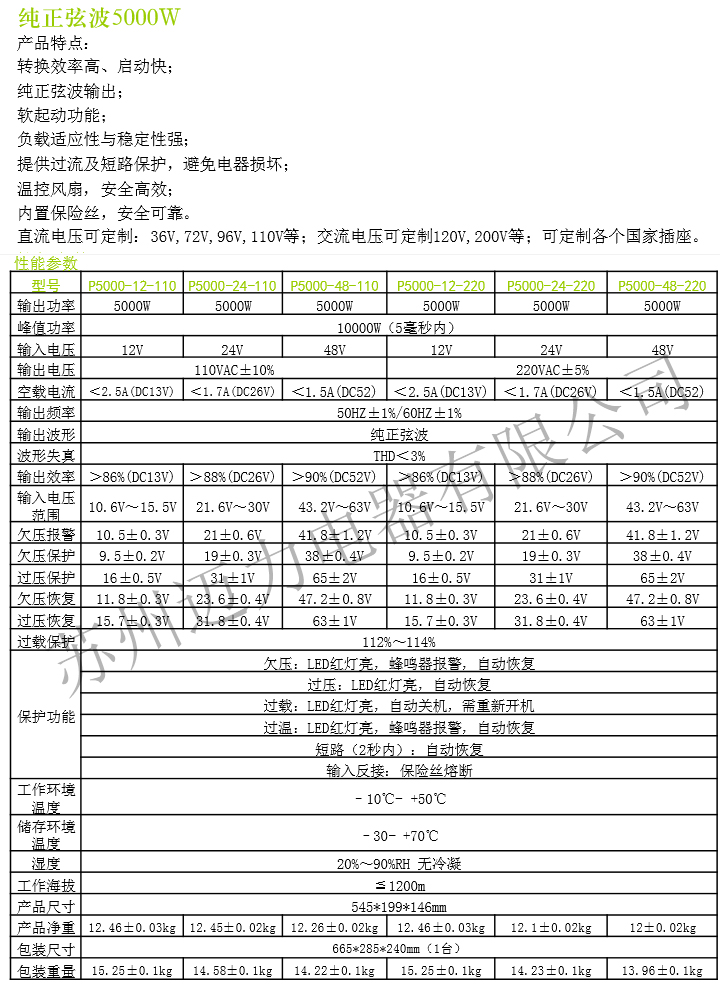 纯正弦波5000W
产品特点：
转换效率高、启动快；
纯正弦波输出；
软起动功能；
负载适应性与稳定性强；
提供过流及短路保护，避免电器损坏；
温控风扇，安全高效；
内置保险丝，安全可靠。
直流电压可定制：36V,72V,96V,110V等；交流电压可定制120V,200V等；可定制各个国家插座。
性能参数
型号 P5000-12-110 P5000-24-110 P5000-48-110 P5000-12-220 P5000-24-220 P5000-48-220
输出功率 5000W 5000W 5000W 5000W 5000W 5000W
峰值功率 10000W（5毫秒内）
输入电压 12V 24V 48V 12V 24V 48V
输出电压 110VAC±10% 220VAC±5%
空载电流 ＜2.5A(DC13V) ＜1.7A(DC26V) ＜1.5A(DC52) ＜2.5A(DC13V) ＜1.7A(DC26V) ＜1.5A(DC52)
输出频率 50HZ±1%/60HZ±1%
输出波形 纯正弦波
波形失真 THD＜3%
输出效率 ＞86%(DC13V) ＞88%(DC26V) ＞90%(DC52V) ＞86%(DC13V) ＞88%(DC26V) ＞90%(DC52V)
输入电压
范围 10.6V～15.5V 21.6V～30V 43.2V～63V 10.6V～15.5V 21.6V～30V 43.2V～63V
欠压报警 10.5±0.3V 21±0.6V 41.8±1.2V 10.5±0.3V 21±0.6V 41.8±1.2V
欠压保护 9.5±0.2V 19±0.3V 38±0.4V 9.5±0.2V 19±0.3V 38±0.4V
过压保护 16±0.5V 31±1V 65±2V 16±0.5V 31±1V 65±2V
欠压恢复 11.8±0.3V 23.6±0.4V 47.2±0.8V 11.8±0.3V 23.6±0.4V 47.2±0.8V
过压恢复 15.7±0.3V 31.8±0.4V 63±1V 15.7±0.3V 31.8±0.4V 63±1V
过载保护 112%～114%
保护功能 欠压：LED红灯亮，蜂鸣器报警，自动恢复
过压：LED红灯亮，自动恢复
过载：LED红灯亮，自动关机，需重新开机
过温：LED红灯亮，蜂鸣器报警，自动恢复
短路（2秒内）：自动恢复
输入反接：保险丝熔断
工作环境
温度 －10℃- +50℃
储存环境
温度 －30- +70℃
湿度 20%～90%RH 无冷凝
工作海拔 ≦1200m
产品尺寸 545*199*146mm
产品净重 12.46±0.03kg 12.45±0.02kg 12.26±0.02kg 12.46±0.03kg 12.1±0.02kg 12±0.02kg
包装尺寸 665*285*240mm（1台）
包装重量 15.25±0.1kg 14.58±0.1kg 14.22±0.1kg 15.25±0.1kg 14.23±0.1kg 13.96±0.1kg
苏州迈力电器有限公司